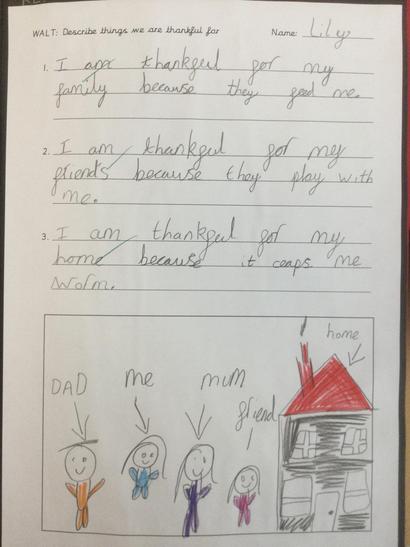 WALT: Describe things we are thankful for Name: Lily
1. I am thankgul gor my
family because they feed me.
2. I am thankgul gor my
griends because they play with
me.
3. I am thankgul gor my
home because it ceaps me
worm.
home
DAD me mum
griend